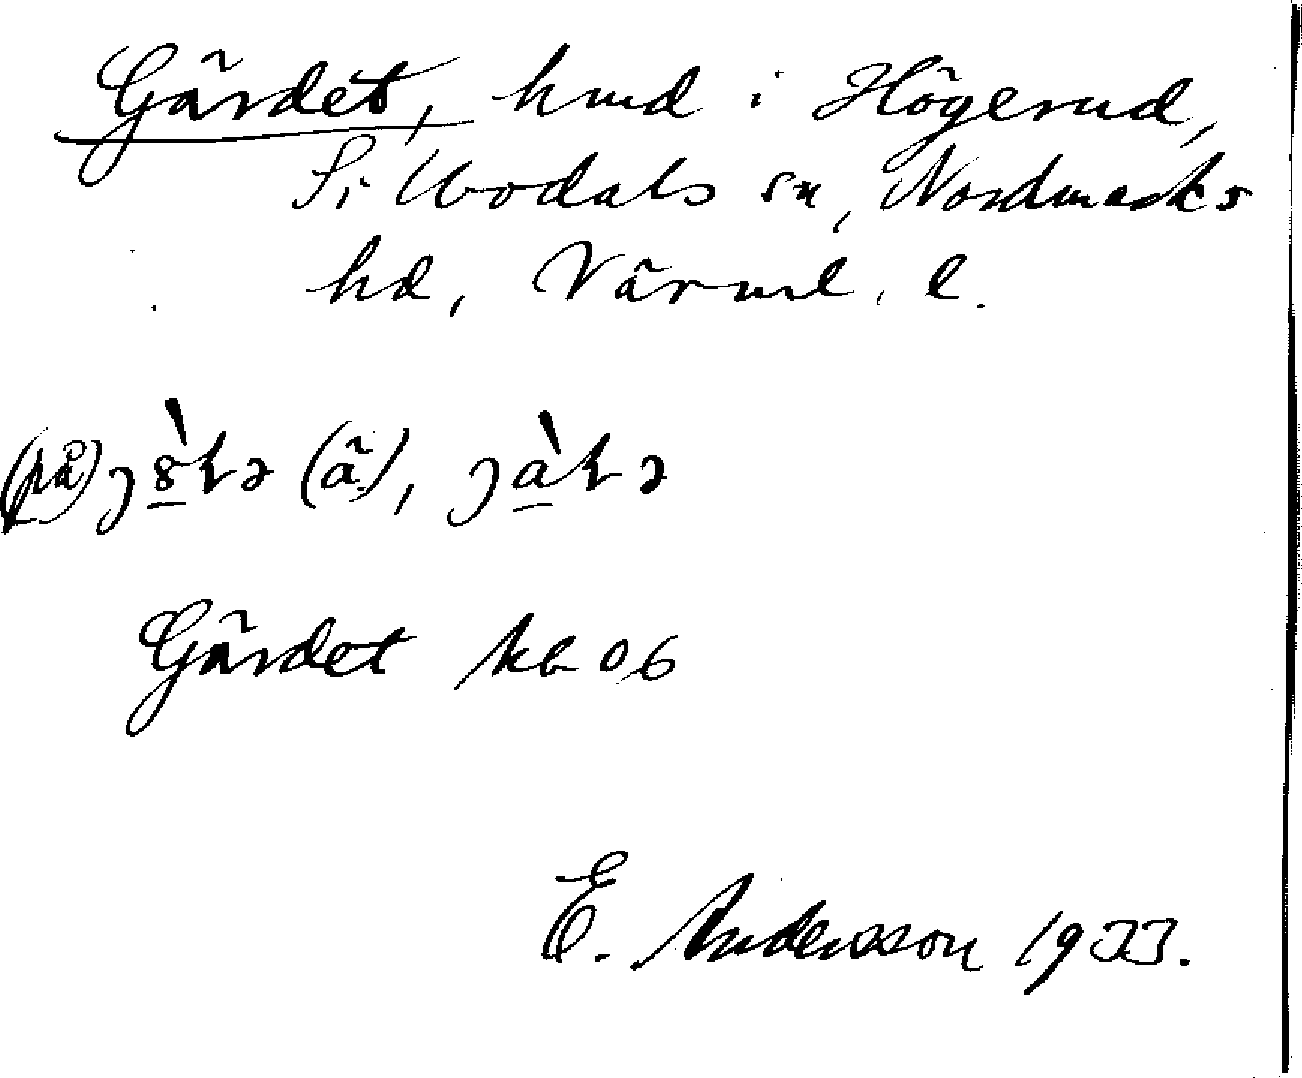 Gärdet, hmd i Högerud,
Sillbodals sn, Nordmarks
hd, Värml. l.
(på)
Gärdet kb 06
E. Andersson 1933.